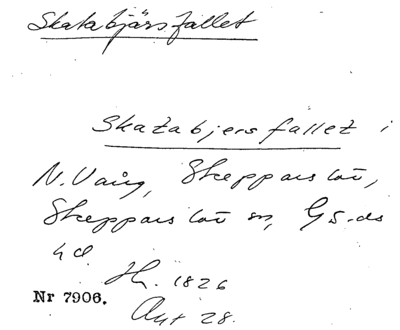 Skatabjärsfallet
Skatabjersfallet i
N. Vång, Skepparslöv,
Skepparslövs sn, Gs-ds
hd
Hr. 1826
Nr 7906.
Akt 28.